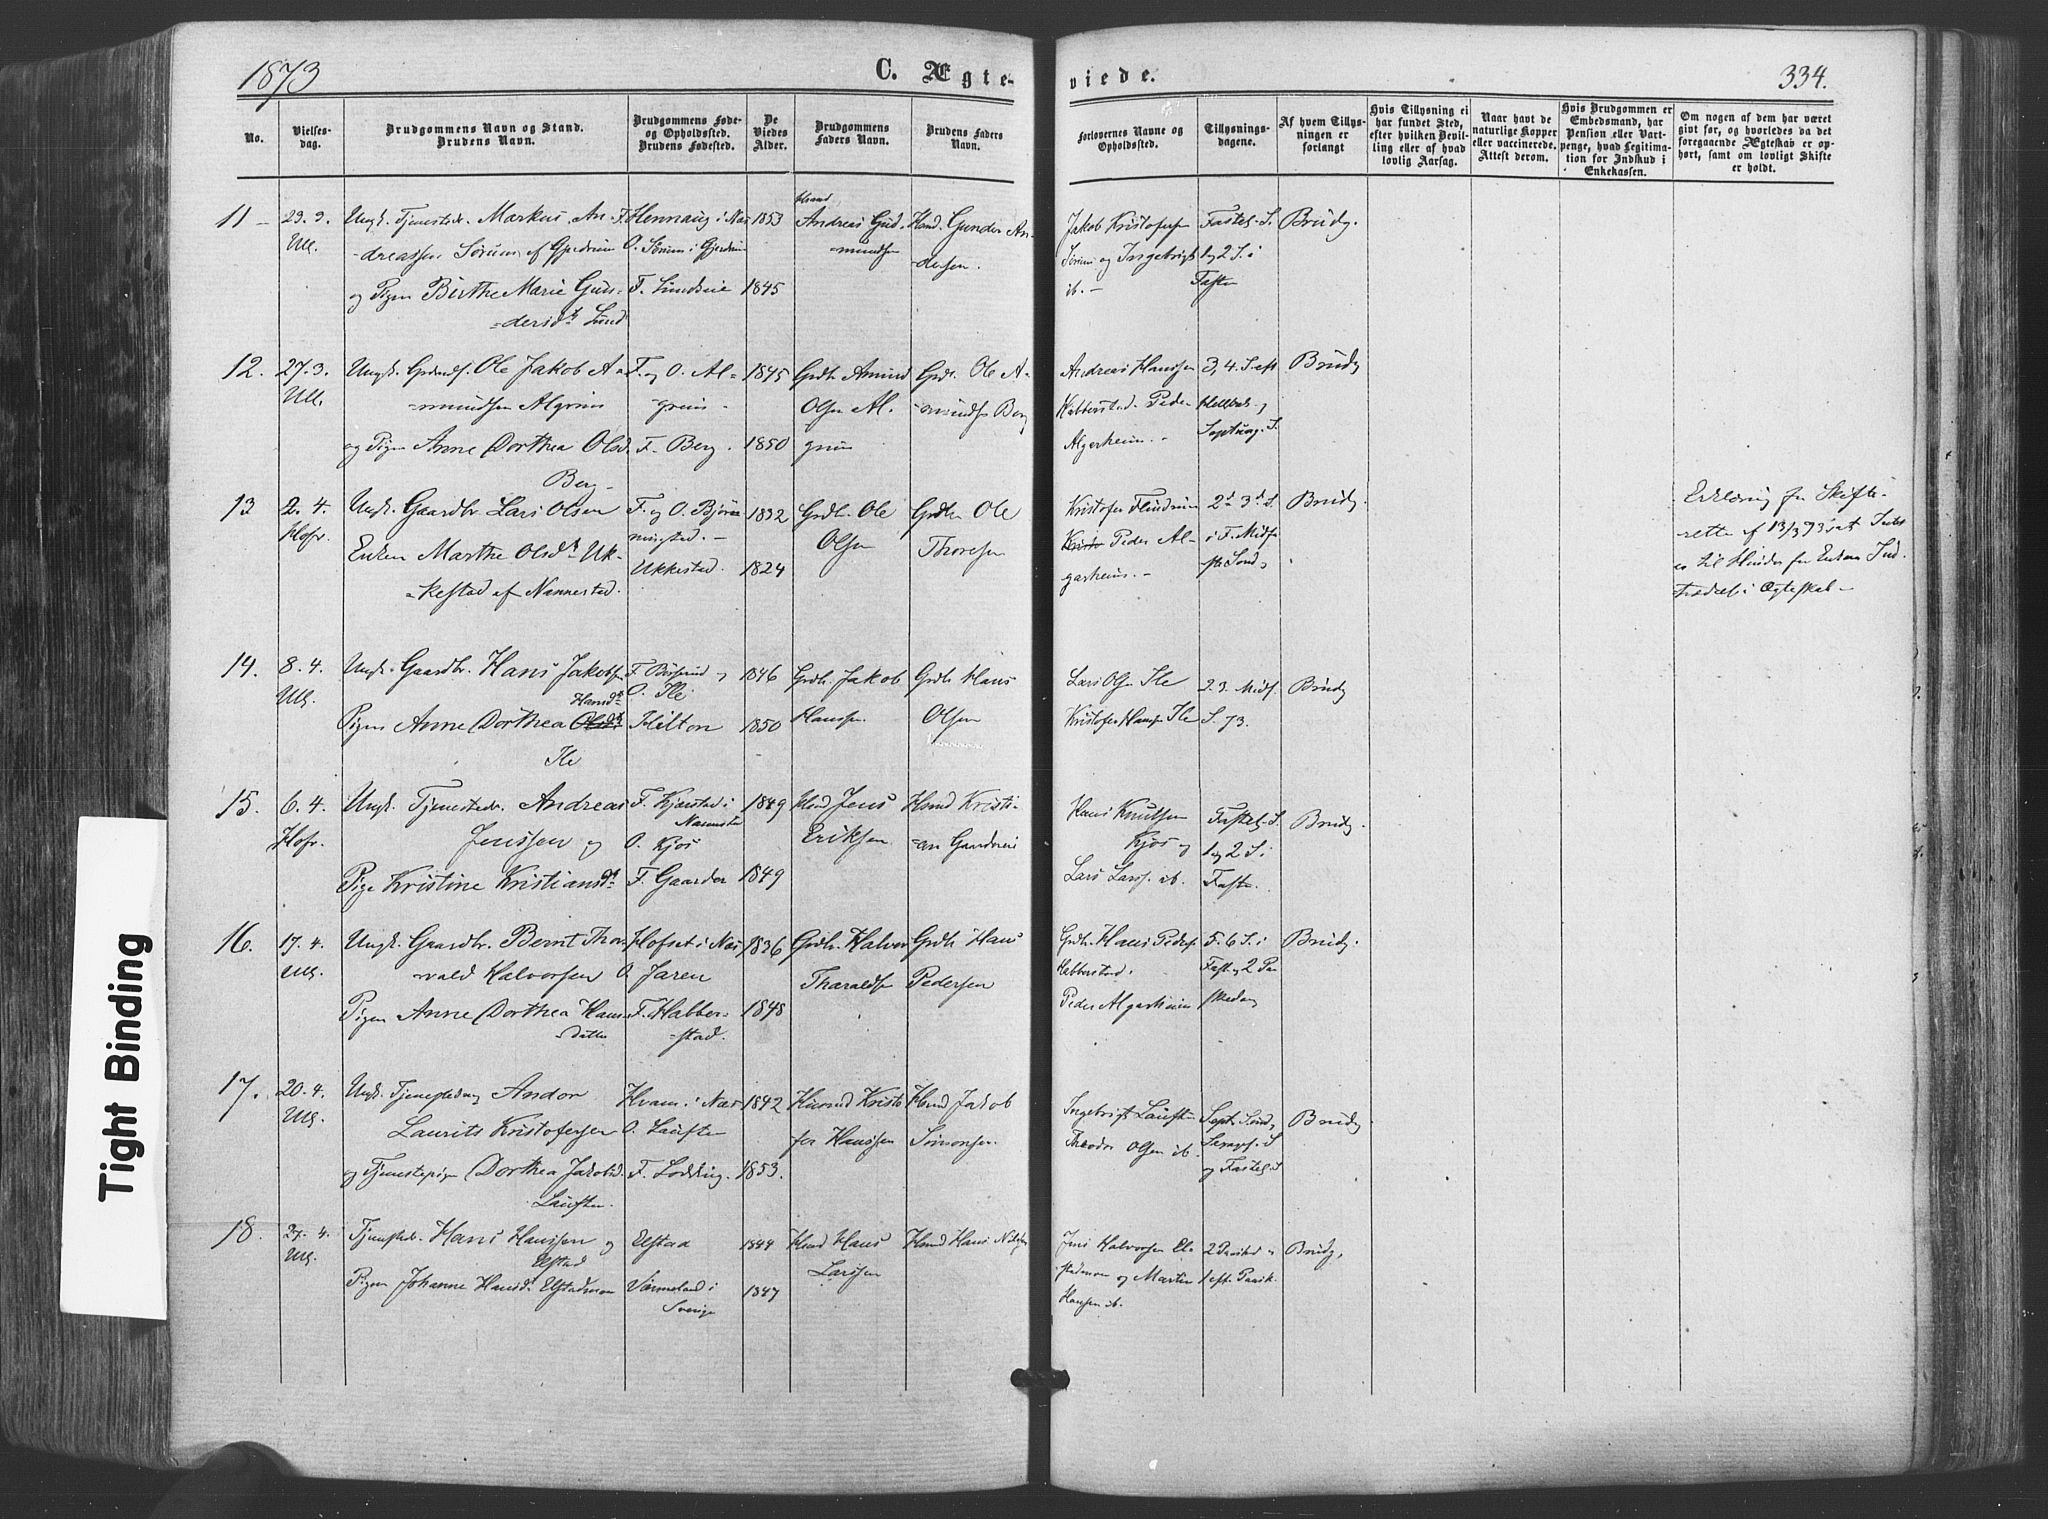 1873
C. Ægteviede.
334.
No.
Vielsesdag.
Brudgommens Navn og Stand.
Brudens Navn.
Brudgommens Føde-
og Opholdssted.
Brudens Fødested.
De
Viedes
Alder.
Brudgommens
Faders Navn.
Brudens Faders
Navn.
Forlovernes Navne og
Opholdssted.
Tillysnings-
dagene.
Af hvem Tillys-
ningen er
forlangt
Hvis Tillysning ei
har fundet Sted,
efter hvilken Bevil-
ling eller af hvad
lovlig Aarsag.
Naar havt de
naturlige Kopper
eller vaccinerede.
Attest derom.
Hvis Brudgommen er
Embedsmand, har
Pension eller Vart-
penge, hvad Legitima-
tion for Indskud i
Enkekassen.
Om nogen af dem har været
givt før, og hvorledes da det
foregaaende Ægteskab er op-
hørt, samt om lovligt Skifte
er holdt.
11 Ungk. Tjenestedr. Markus An-
dreassen Sørum af Gjerdrum
og Pigen Birthe Marie Gun-
dersdt. Lund
F. Hennaug i Næs
O. Sørum i Gjerdrum
F. Lundeie
1853
1845
Husmd
Andreas Gud-
mundsen
Husmd. Gunder An-
dersen.
Jakob Kristofersen
Sørum og Ingebrigt
ib.
Fastel. S.
1 og 2 S. i
Faste
Brudg.
12. 27. 3.
Ull.
Ungk. Ole Jakob A-
mundsen Algrim
og Pigen Anne Dorthea Olsd.
Berg
F. og O. Al-
grim
F. Berg.
1845
1850
Grdb. Amund
Olsen Al-
grim
Grdb. Ole A-
mundsen Berg
Andreas Hanssen
Habberstad. Peder
Algerheim.
3, 4. S. eft.
Hellig 3 K. og
Septuag. S.
Brudg
13 2. 4.
Hofr.
Ungk. Gaardbr. Lars Olsen
Enken Marthe Olsdt. Uk-
kestad af Nannestad.
F. og O. Bjørn-
ningstad.
Ukkestad.
1832
1824
Grdb. Ole
Olsen
Grdbr Ole
Thoresen
Kristofer Flindrum
Peder Al-
garheim.
2d 3d S.
i F. Midf.
Brudg.
Erklæring fra Skifte-
retten af 13/3 73 at Intet
er til Hinder for Enkens Ind-
trædelse i Ægteskab
14. 8. 4.
Ull.
Ungk. Gaardbr. Hans Jakobsen
Hansdt.
Pigen Anne Dorthea Olsdt.
Ile
F. Børsund og
O. Ile
Hilton
1846
1850
Grdb. Jakob
Hanssen.
Grdb Hans
Olsen
Lars Olsen Ile
Kristofer Hansen Ile
2. 3. Midf.
S. 73.
Brudg
15. 6. 4.
Hofr.
Ungk. Tjenestedr. Andreas
Jenssen og
Pige Kristine Kristiansdt.
F. Kjærstad i
Nannestad
O. Kjos
F. Gaarder
1849
1849
Husmd Jens
Eriksen
Husmd Kristi-
an Gaardereie
Hans Knutsen
Kjos og
Lars Larss. ib.
Fastel. S.
1 og 2 S. i
Faste.
Brudg.
16. 17. 4.
Ull.
Ungk. Gaardbr. Bernt Thor-
vald Halvorsen
Pigen Anne Dorthea Hans-
datter
Hofset i Næs
O. Jaren
F. Habber-
stad.
1836
1848
Grdb. Halvor
Tharaldsen
Grdb. Hans
Pedersen
Grdb. Hans Peders.
Habberstad.
Peder Algarheim
5. 6 S. i
Fast. og 2 Paa-
skedag
Brudg.
17. 20. 4.
Ull.
Ungk. Tjenestedreng Andor
Laurits Kristofersen
og Tjenestepigen Dorthea Jakobsd.
Løvsten.
Hvam i Næs
O. Løvsten
F. Lodding.
1842
1853.
Husmd Kristo-
fer Hanssen
Husmd Jakob
Simonsen.
Ingebrigt Løvsten
Theodor Olsen ib.
Sept. Sønd.
Sexages. S
og Fastel. S
Brudg
18. 27. 4.
Ull.
Tjenestedr. Hans Hanssen og
Elstad
Pigen Johanne Hansd. Elstadmoen
Elstad
Værmeland i
Sverige
1844
1847
Husmd Hans
Larssen
Husmd Hans Nilssen
Jens Halvorsen El-
stadmoen og Martin
Hansen ib.
2 Paaskedag
1 eft. Paask.
Brudg.
Tight Binding